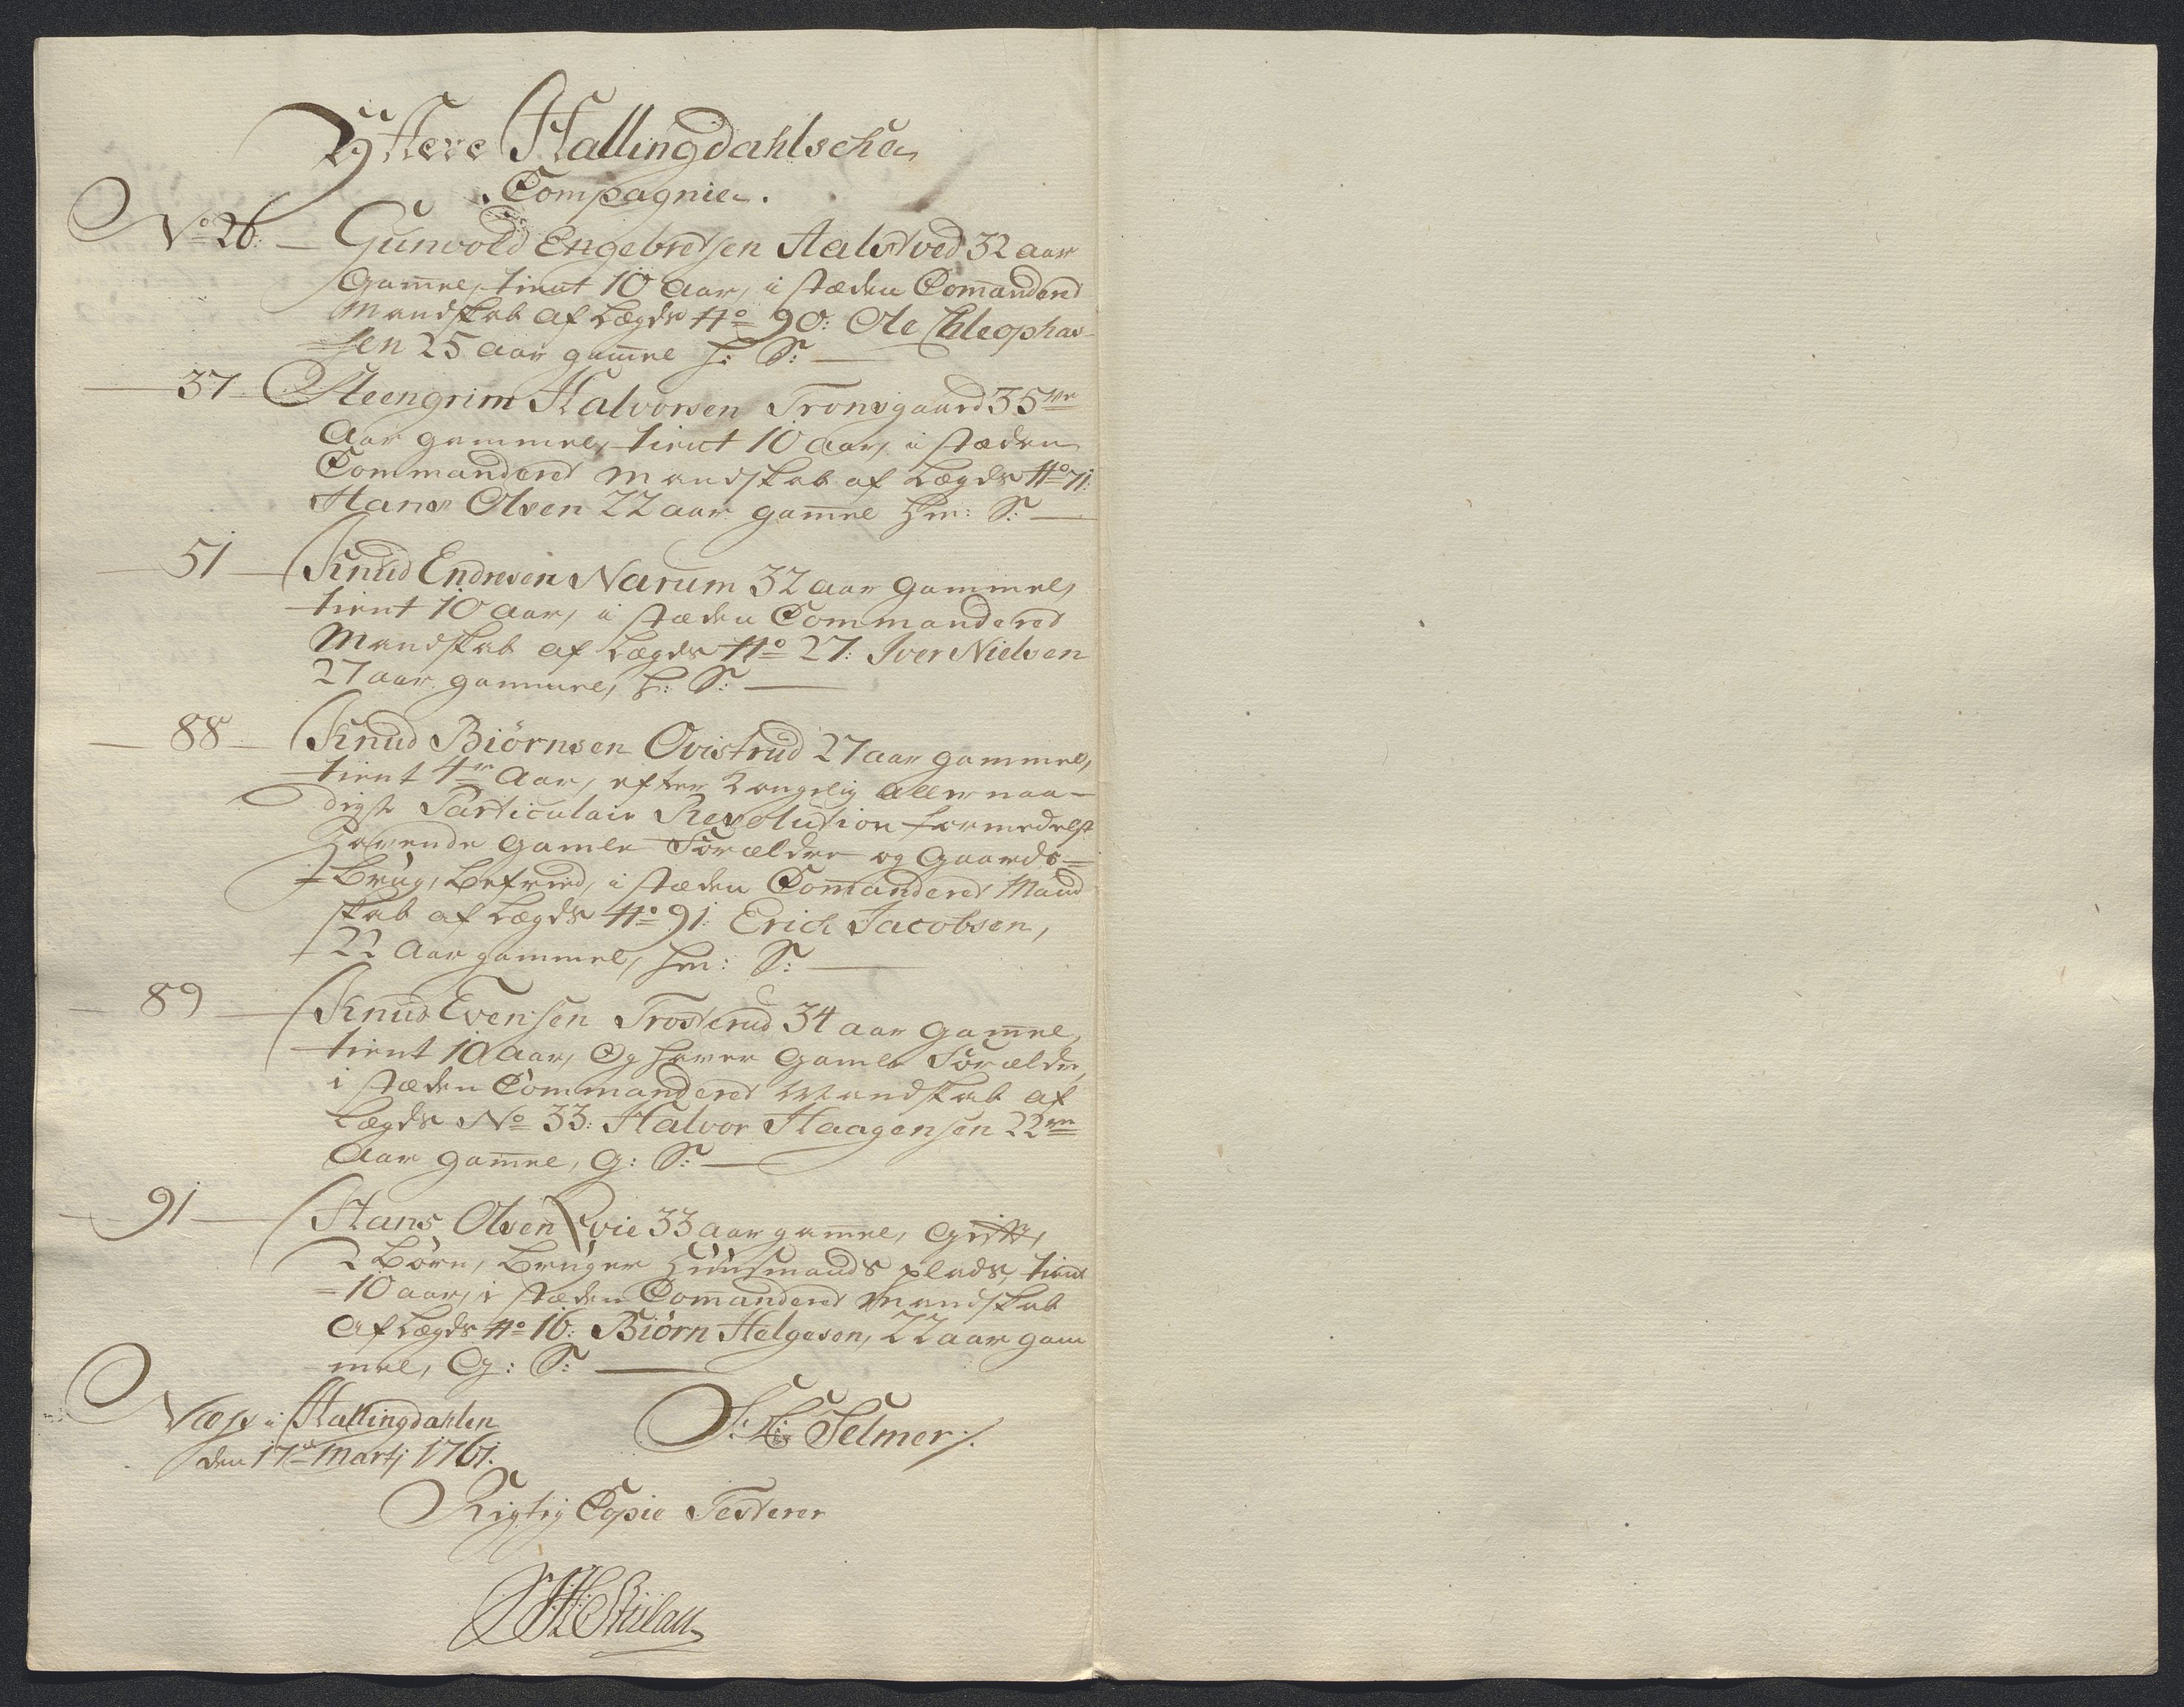 Yttere Hallingdahlsche
Compagnie.
No 26. Gunvold Engebretsen Aalstved 32 aar
gam̅el, tient 10 aar, i stæden Com̅anderet
Mandskab af Lægds No 90: Ole Chleophas-
sen 25 aar gam̅el h: S:
37 Steengrim Halvorsen Tronsgaard 35ve
Aar gammel, tient 10 aar, i stæden
Commanderet Mandskab af Lægds No 71:
Hans Olsen 22 aar gam̅el S:
51 Knud Endresen Narum 32 aar gammel,
tient 10 aar, i stæden Commanderet
Mandskab af Lægds No 27: Iver Nielsen
27 aar gammel, h: S:
88 Knud Biørnsen Qvistrud 27 aar gammel,
tient 4re Aar, efter Kongelig allernaa-
digste Particulair Resolution formedelst
havende gamle Forældre og Gaards-
Brug, befried, i stæden Com̅anderet Mand
skab af Lægds No 91: Erich Jacobsen,
22 Aar gammel, S:
89 Knud Evensen Trosterud 34 aar gam̅el,
tient 10 Aar, Og haver gamle Forældre,
i stæden Commanderet Mandskab af
Lægds No 33: Halvor Haagensen 22ve
Aar gam̅el, G: S:
91 Hans Olsen Evie 33 aar gam̅el, Gift,
2 Børn, bruger Huusmands plads, tient
10 aar, i stæden Com̅anderet Mandskab
af Lægds No 16: Biørn Helgesen, 22 aar gam
mel, G: S:
Næss i Hallingdahlen
den 17de Martj 1761.
Selmer
Rigtig Copie Testerer